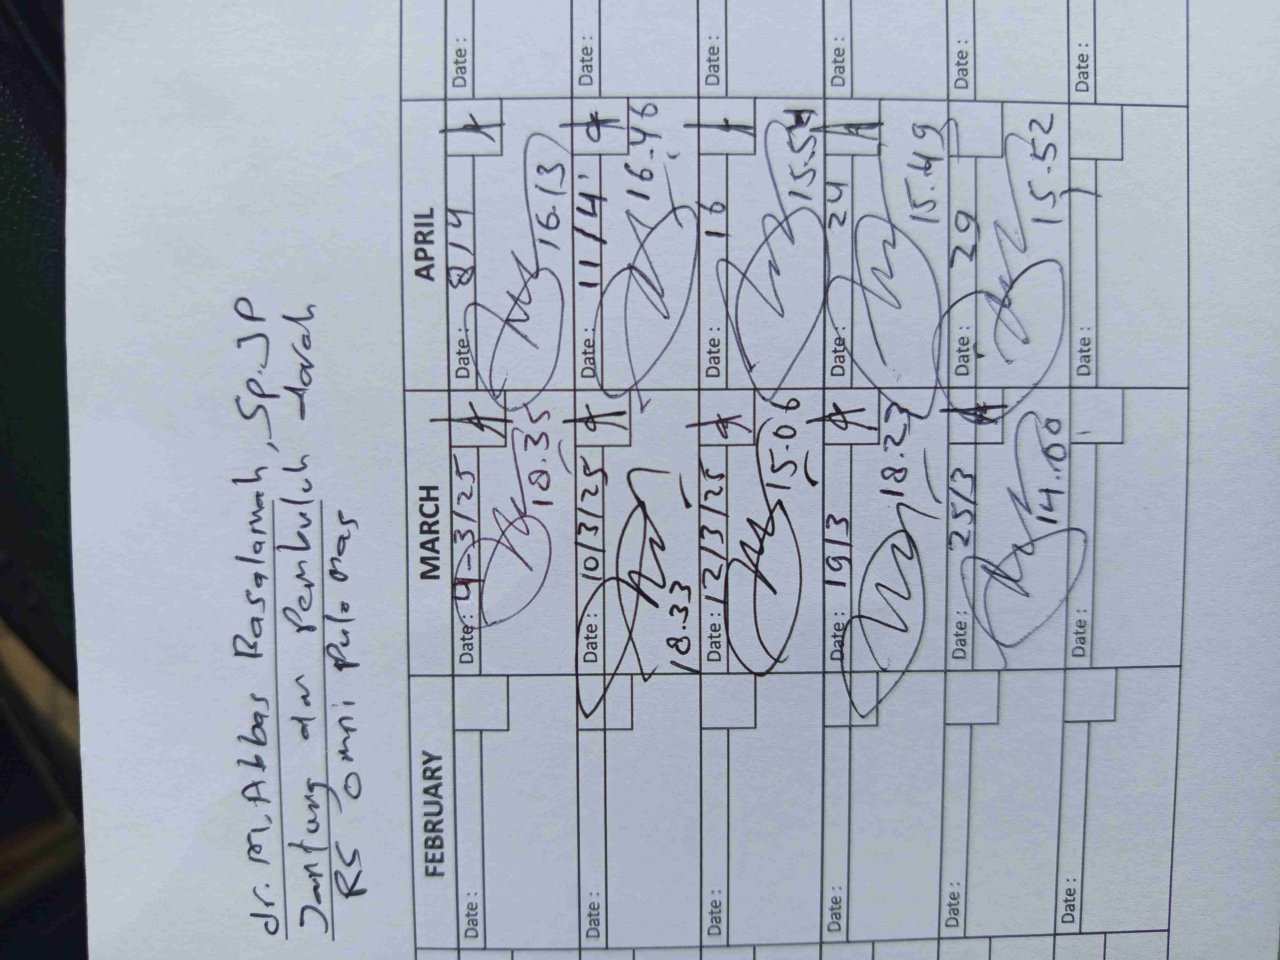 dr. M. Abbas Basalamah, Sp.JP
Jantung dan Pembuluh darah
RS Omni Pulomas
FEBRUARY MARCH APRIL
Date: Date: 4-3/25 Date: 8/4 Date:
18.35 16.13
Date: Date: 10/3/25 Date: 11/4 Date:
18.33 16.46
Date: Date: 12/3/25 Date: 16 Date:
15.06 15.54
Date: Date: 19/3 Date: 24 Date:
18.23 15.49
Date: Date: 25/3 Date: 29 Date:
14.00 15.52
Date: Date: Date: Date: